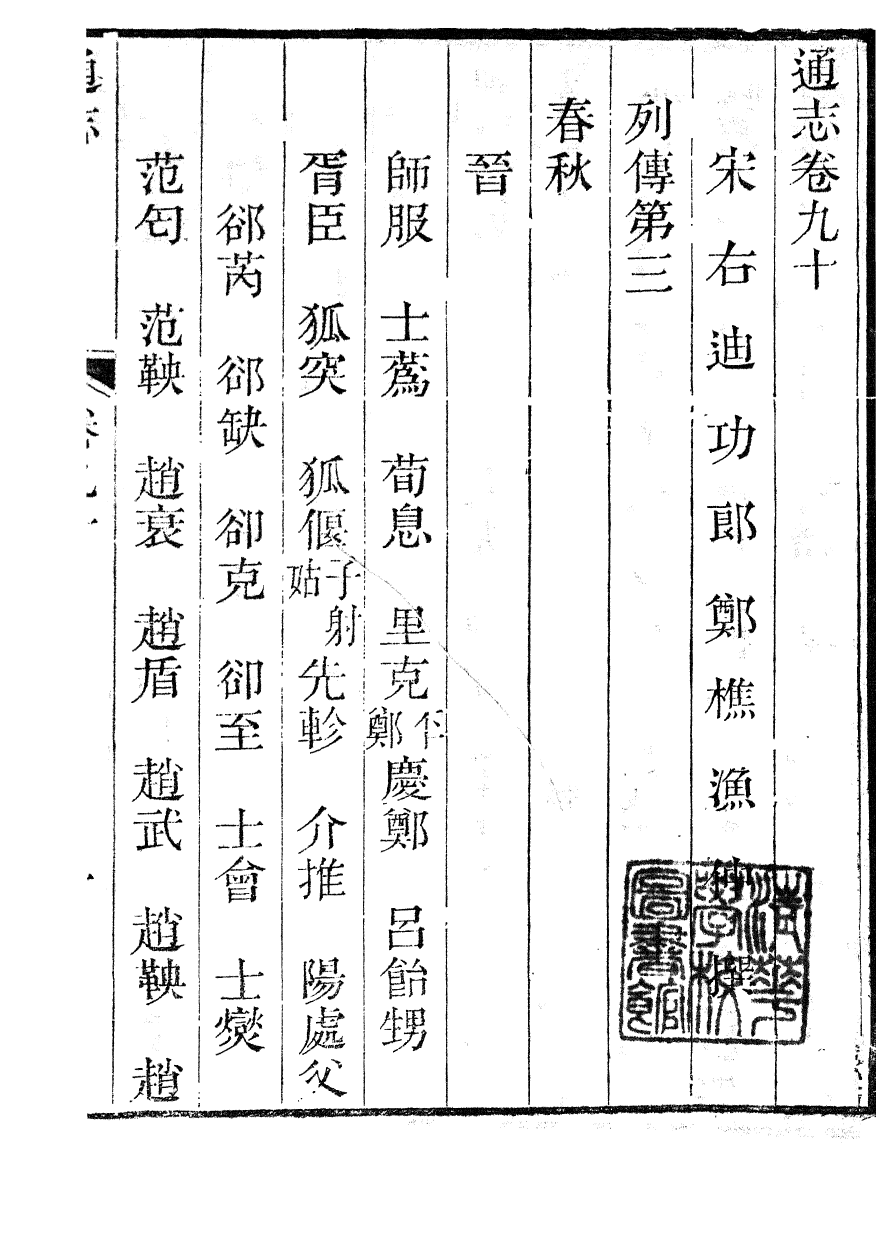 通志卷九十
宋右迪功郎鄭樵漁仲撰
列傳第三
春秋
晉
師服　士蔿　荀息　里克㔻鄭　慶鄭　呂飴甥
胥臣　狐突　狐偃子射姑　先軫　介推　陽處父
郤芮　郤缺　郤克　郤至　士會　士燮
范匄　范鞅　趙衰　趙盾　趙武　趙鞅　趙
通志
卷九十
清華學校圖書館